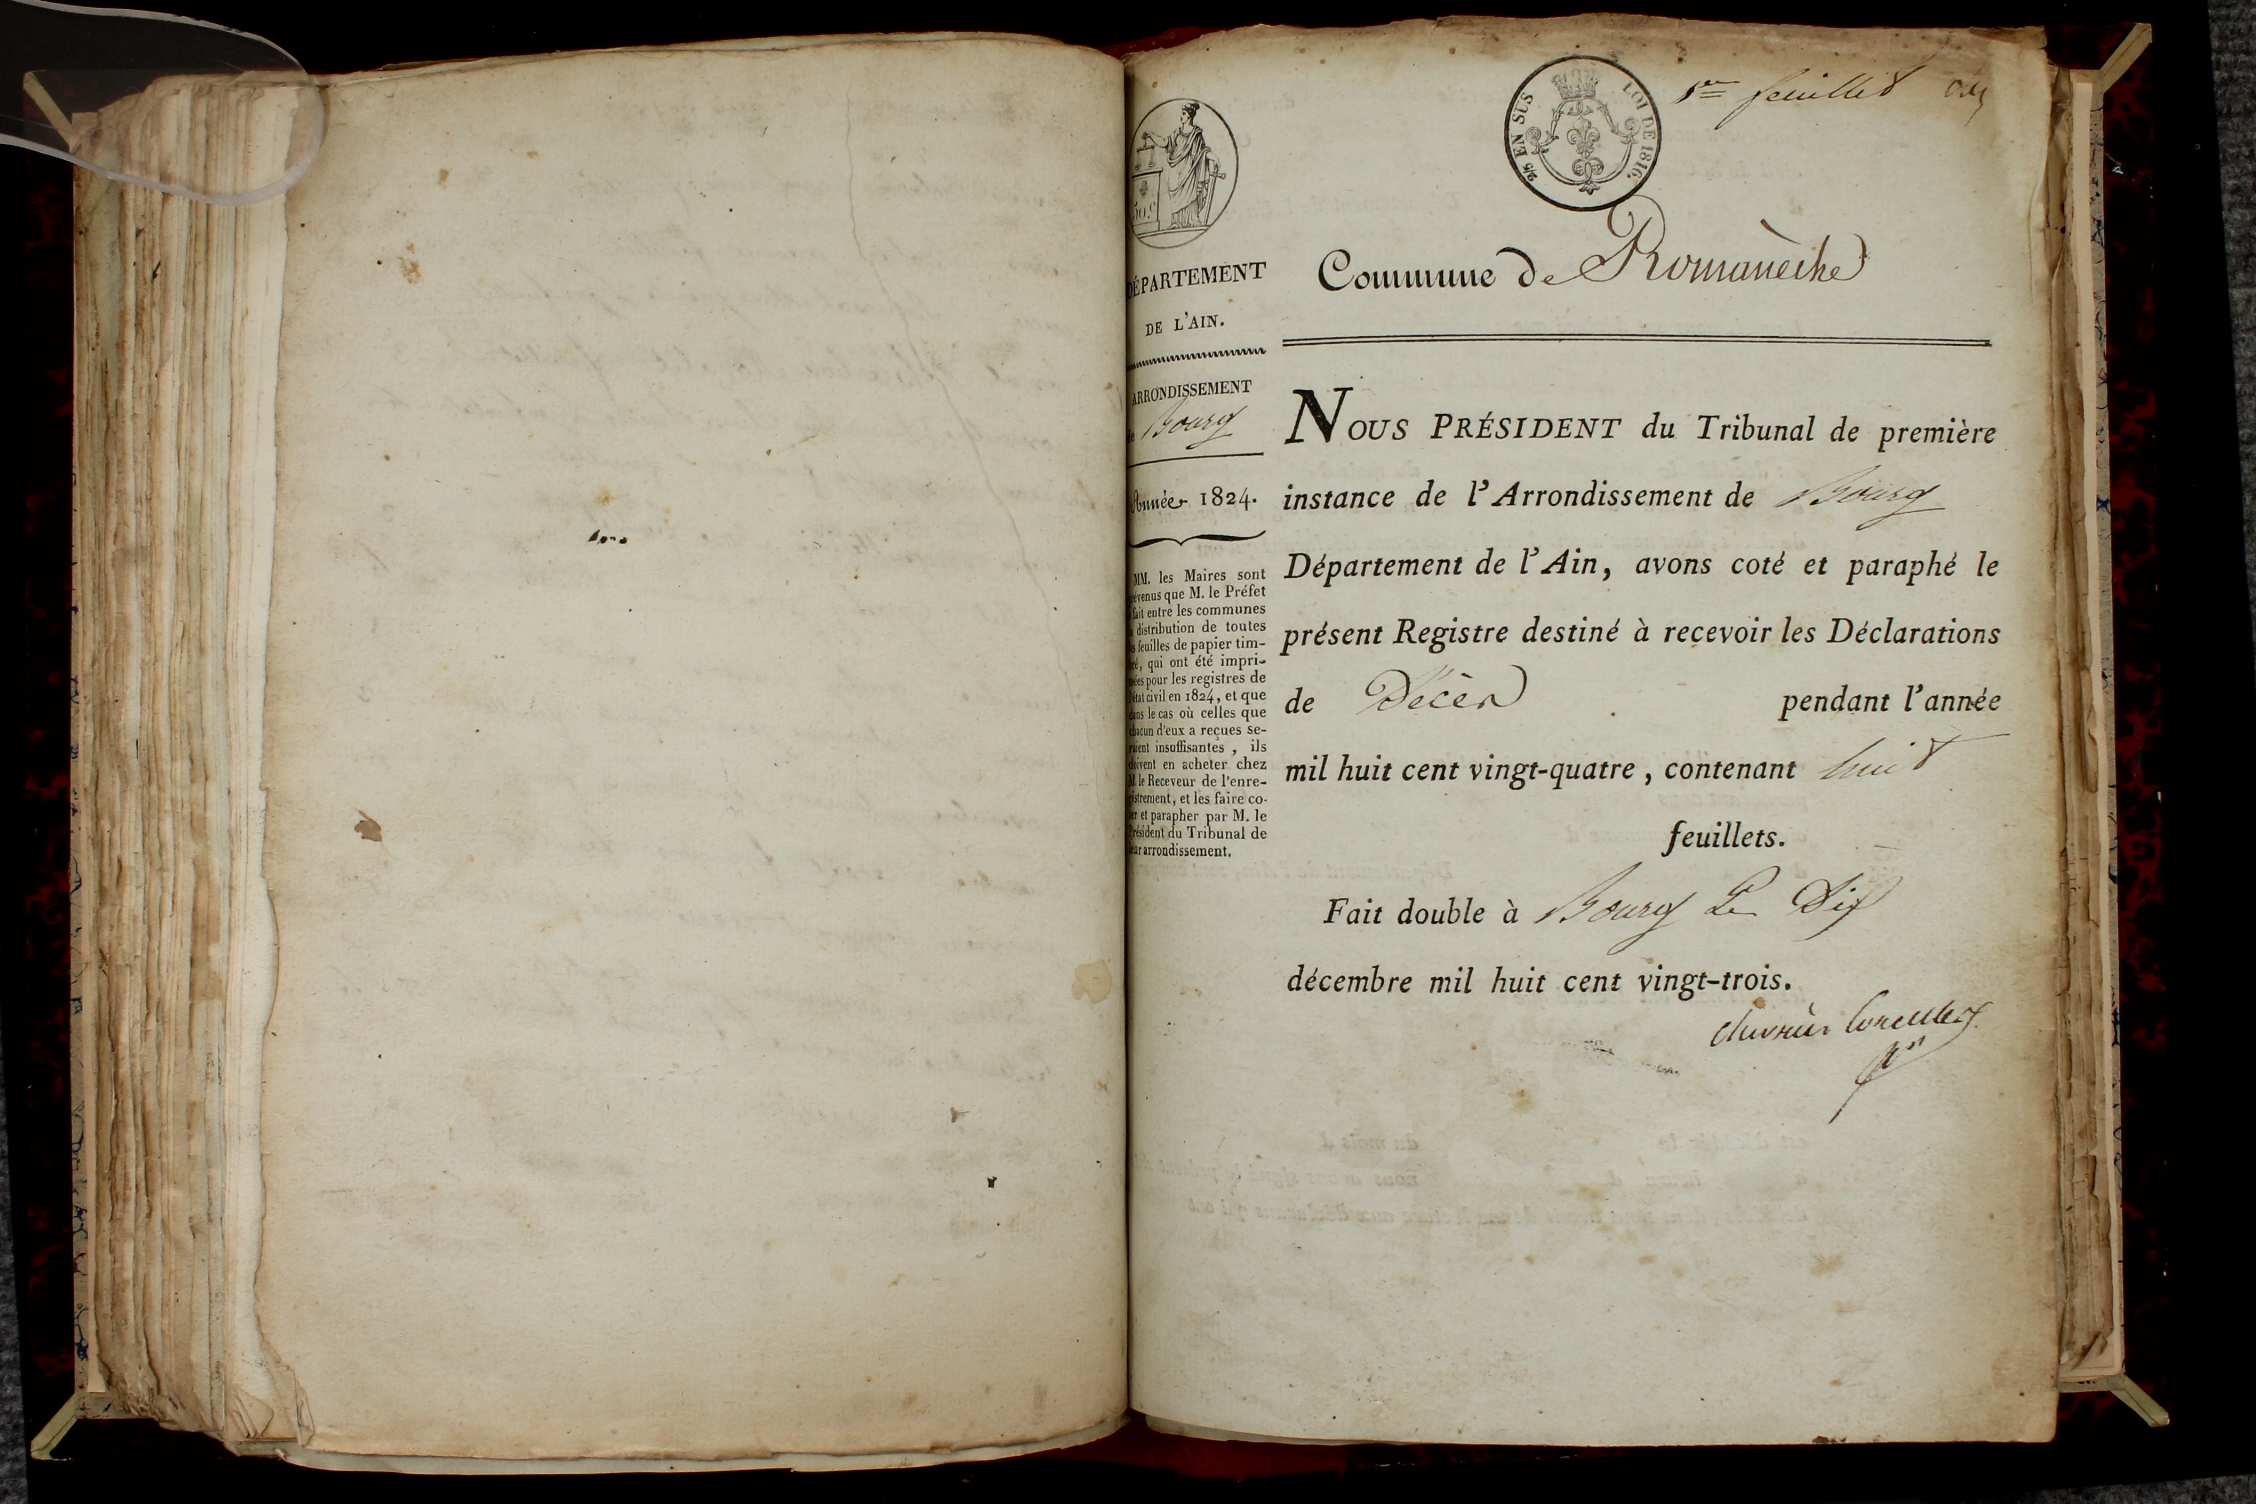 1er feuillet
2/5 EN SUS LOI DE 1816.
50.c
DÉPARTEMENT
DE L'AIN.
ARRONDISSEMENT
de Bourg
Année 1824.
MM. les Maires sont
prévenus que M. le Préfet
a fait entre les communes
la distribution de toutes
les feuilles de papier tim-
bré, qui ont été impri-
mées pour les registres de
l'état civil en 1824, et que
dans le cas où celles que
chacun d'eux a reçues se-
raient insuffisantes, ils
doivent en acheter chez
M. le Receveur de l'enre-
gistrement, et les faire co-
ter et parapher par M. le
Président du Tribunal de
leur arrondissement.
Commune de Romanèche
NOUS PRÉSIDENT du Tribunal de première
instance de l'Arrondissement de Bourg
Département de l'Ain, avons coté et paraphé le
présent Registre destiné à recevoir les Déclarations
de Décès pendant l'année
mil huit cent vingt-quatre, contenant huit
feuillets.
Fait double à Bourg Le Dix
décembre mil huit cent vingt-trois.